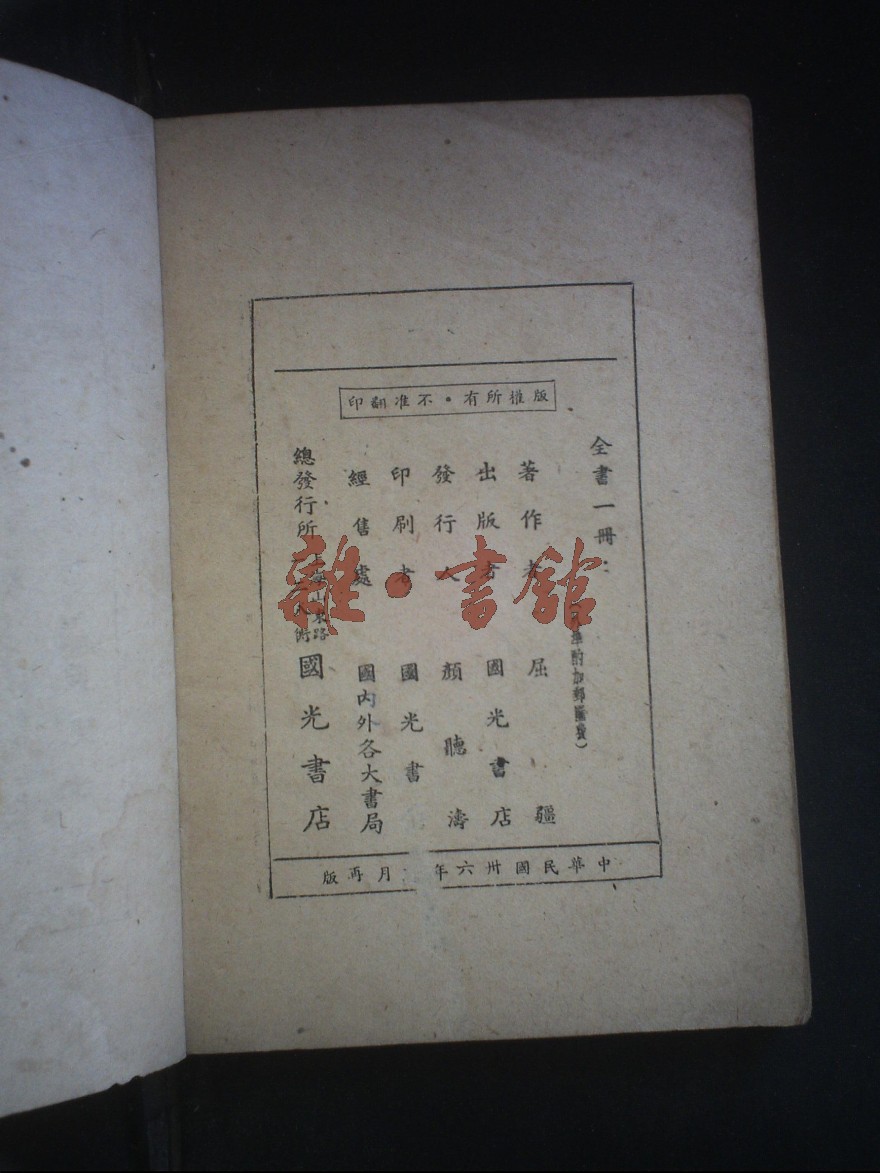 版權所有・不准翻印
全書一冊：
酌加郵匯費）
著作者 屈疆
出版者 國光書店
發行人 顏聽濤
印刷者 國光書
經售處 國內外各大書局
總發行所 國光書店
中華民國卅六年 月再版
雜・書館